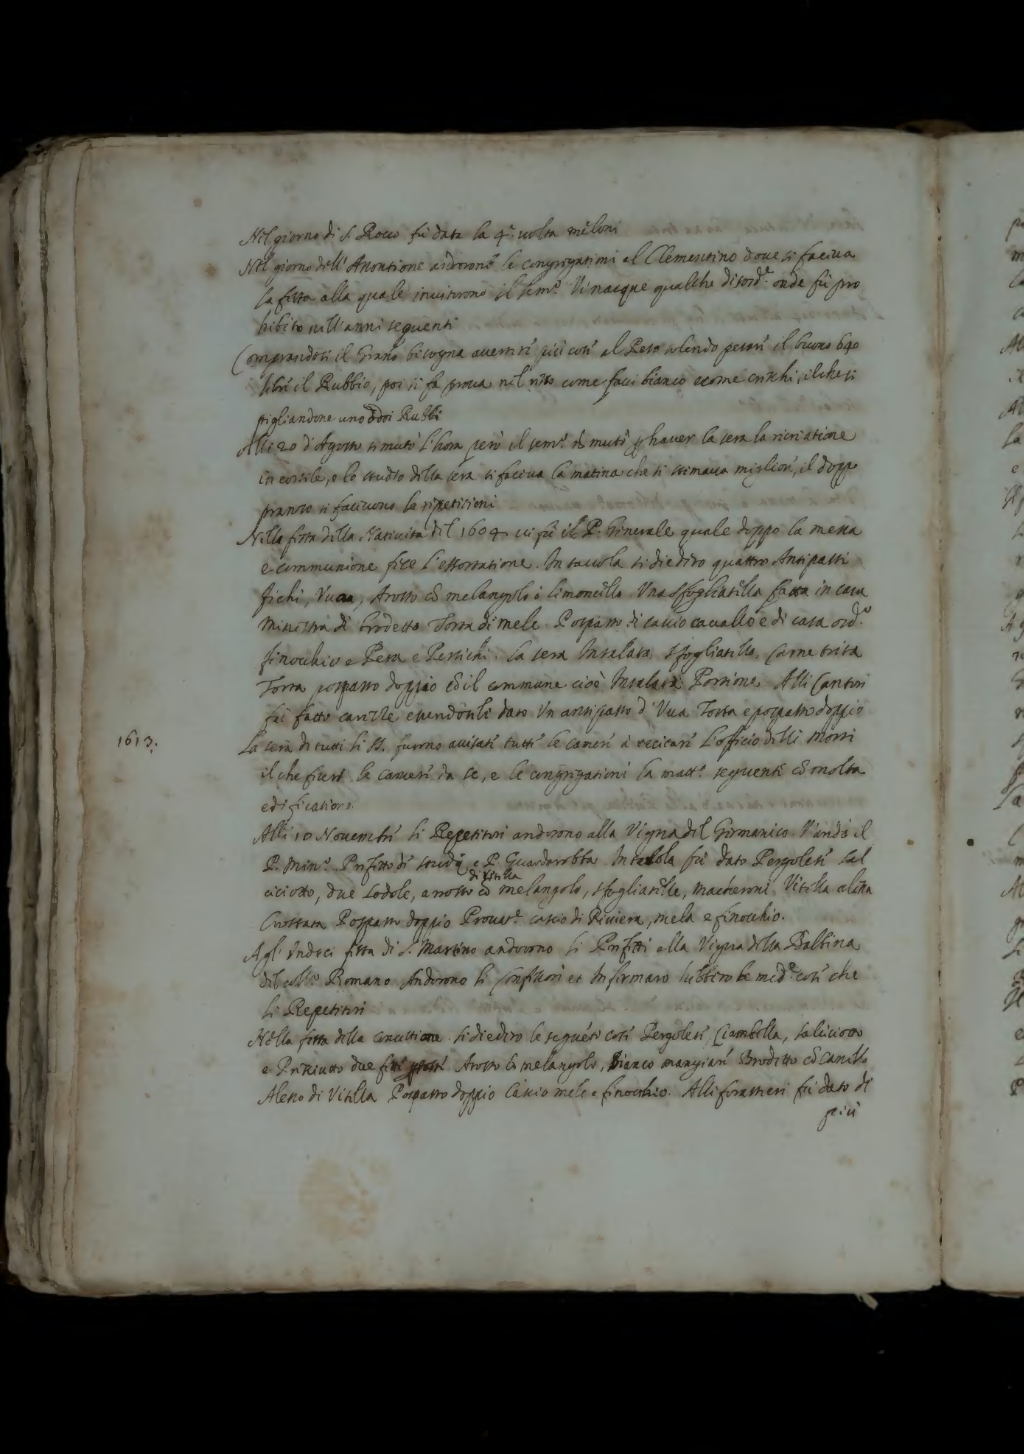 Nel giorno di S. Rocco fù data la 4.ª uolta meloni
Nel giorno dell'Assontione andorono le congregationi al Clementino doue si faceua
la festa alla quale inuitorono il sem.º Vi nacque qualche disord.e onde fù pro
hibito nell'anni seguenti
Comprandosi il Grano bisogna auertire più cose al Peso uolendo pesare il buono 640
libre il Rubbio, poi si fa proua nel resto come facci bianco
pigliandone uno ò doi Rubbi
Alli 20 d'Agosto si mutò l'hora però il sem.º si mutò p hauer la sera la ricreatione
in cortile, e lo studio della sera si faceua la matina che si stimaua migliore, il doppo
pranzo si faceuono le ripetitioni
Nella festa della Natiuità del 1609 ui fù il P. Generale quale doppo la messa
e communione fece l'essortatione. In tauola si diedero quattro Antipasti
fichi, Vua, Arosto cõ melangolo ò limoncello Una sfogliatella fatta in casa
Minestra di brodetto Torta di mele Pospasto di cascio cauallo e di casa ord.º
finocchio e Pera e Persichi. La sera Insalata, sfogliatelle, Carne trita
Torta pospasto doppio cõ il commune cioè Insalata Portione. Alli Cantori
fù fatto cauelle euendoli dato Un antipasto d'Vua Torta e pospasto doppio
1613. La sera di tutti li SS. furono auisati tutte le camere à recitare l'officio delli Morti
il che fecero le camere da se, e le congregationi la matt.ª seguente cõ molta
edificatione
Alli 10 Nouembre li Repetitori andorono alla Vigna del Germanico. V'andò il
P. Min.º Prefetto di studij e P. Guardarobba In tauola fù dato Pergolese sal
di Vitella
ciciotto, due Lodole, arrosto cõ melangolo, sfogliatelle, maccheroni Vitella alessa
Crostata Pospasto doppio Prouat.e cascio di Riuiera, mela e finocchio.
Agl'Undeci festa di S. Martino andorono li Prefetti alla Vigna della Balbina
del coll.º Romano Andorono li Confessori et Infermaro hebbero le med.e cose che
li Repetitori
Nella festa della Concettione si diedero le seguẽti cose Pergolese, Ciambella, salciciotto
e Priciutto due Arosto cõ melangolo, Bianco mangiare Brodetto cõ
Alesso di Vitella Pospasto doppio Cascio mele e finocchio. Alli forastieri fù dato di
più